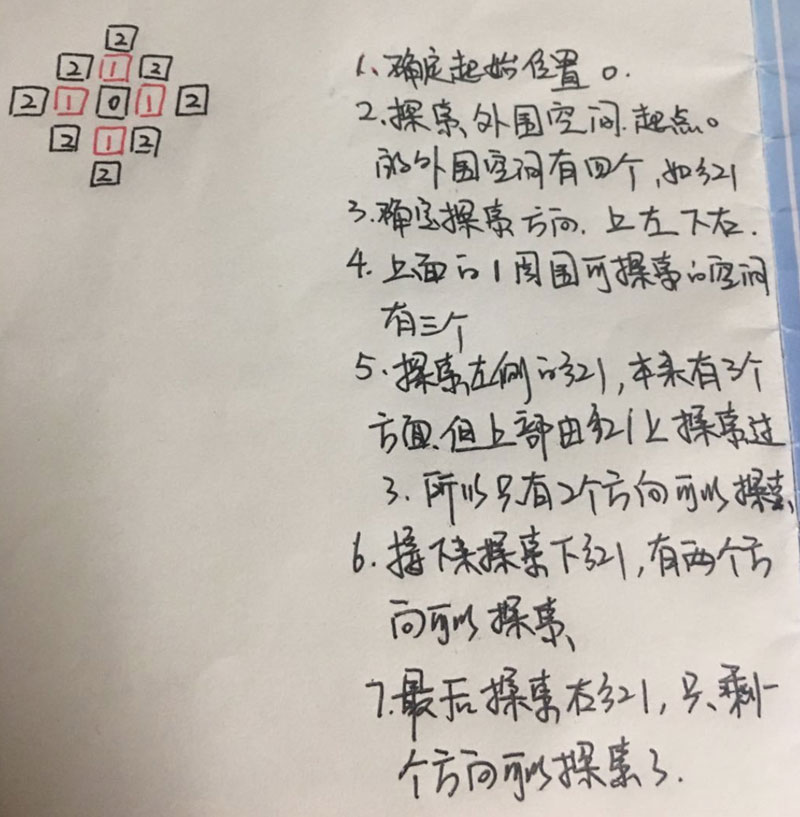 2
2 1 2
2 1 0 1 2
2 1 2
2
1、确定起始位置 0.
2.探索外围空间.起点0
的外围空间有四个,如红1
3.确定探索方向.上左下右.
4.上面的1周围可探索的空间
有三个
5.探索左侧的红1,本来有3个
方面.但上部由红1上探索过
了.所以只有2个方向可以探索
6.接下来探索下红1,有两个方
向可以探索、
7.最后探索右红1,只剩一
个方向可以探索了.